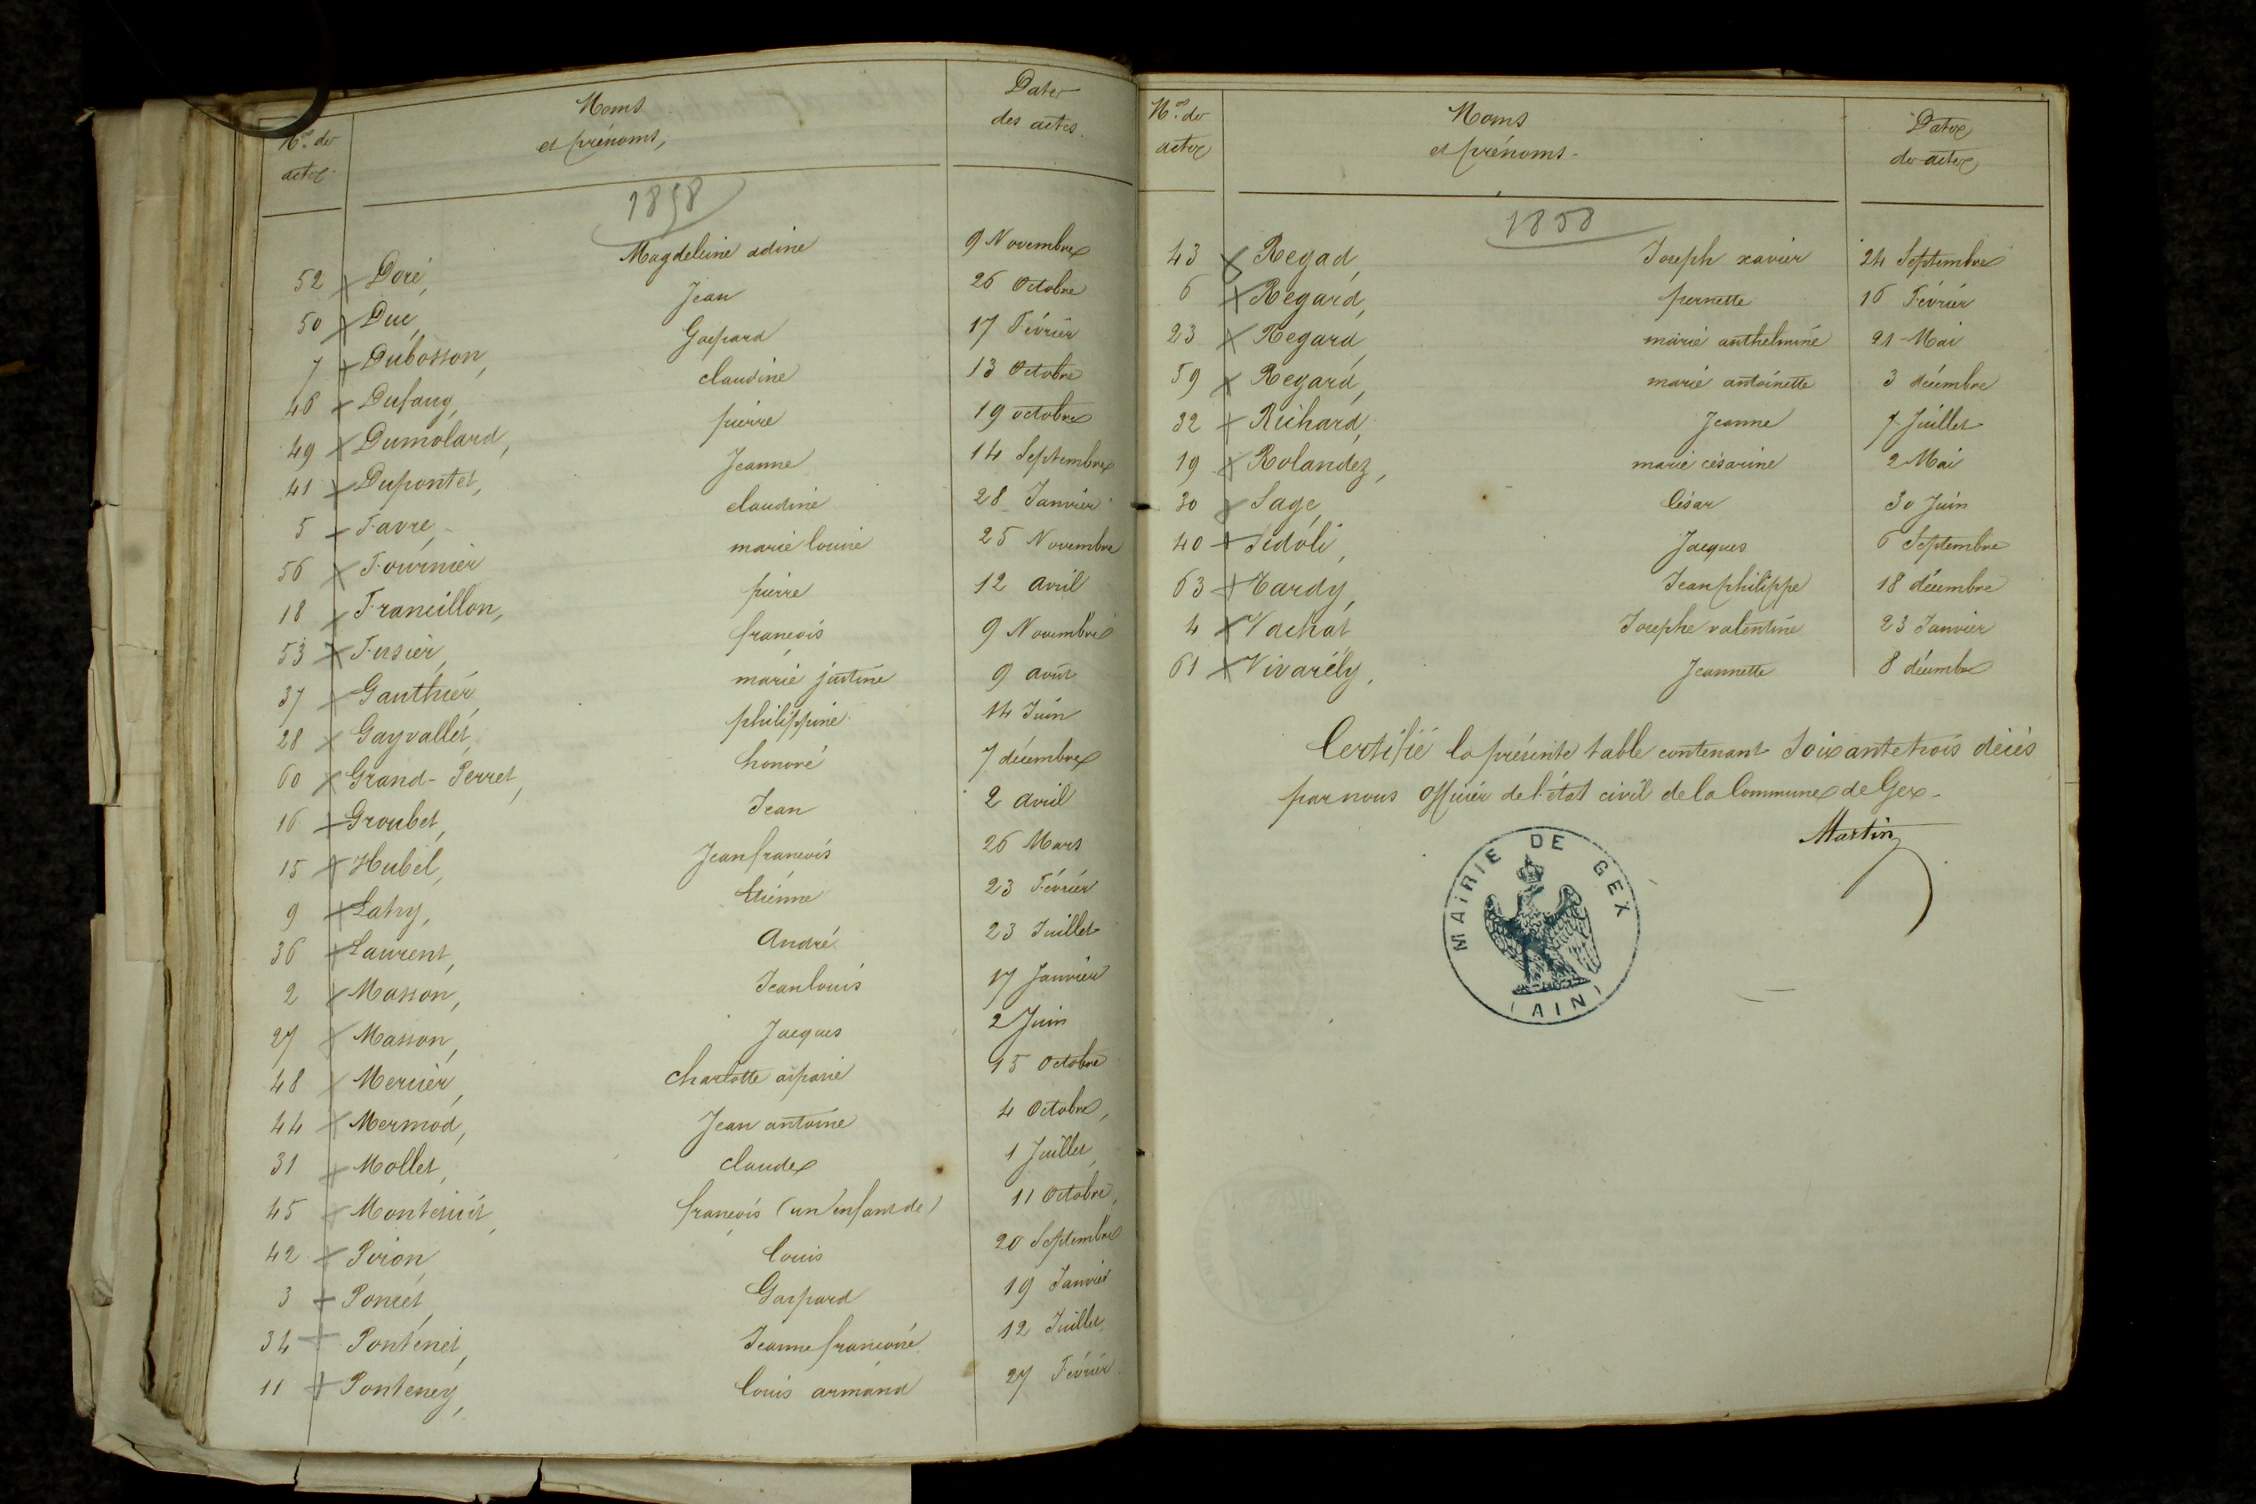 Nos. des actes
Noms et prénoms,
Dates des actes.
1858
52 Doré, Magdeleine adine 9 Novembre
50 Duc, Jean 26 Octobre
7 Dubosson, Gaspard 17 Février
46 Dufaug, claudine 13 Octobre
49 Dumolard, pierre 19 octobre
41 Dupontet, Jeanne 14 Septembre
5 Favre, claudine 28 Janvier
56 Fournier marie louise 25 Novembre
18 Francillon, pierre 12 avril
53 françois 9 Novembre
37 Gauthier, marie justine 9 août
28 Gayvallet, philippine 14 Juin
60 Grand-Perret, honoré 7 décembre
16 Groubet, Jean 2 avril
15 Hubel, Jean françois 26 Mars
9 Latry, Etienne 23 Février
36 Laurent, André 23 Juillet
2 Masson, Jean louis 17 Janvier
27 Masson, Jacques 2 Juin
48 Mercier, charlotte aspasie 15 Octobre
44 Mermod, Jean antoine 4 Octobre,
31 Mollet, claude 1 Juillet,
45 françois (un enfant de) 11 Octobre,
42 louis 20 Septembre
3 Poncet, Gaspard 19 Janvier
34 Pontenet, Jeanne françoise 12 Juillet
11 Ponteney, louis armand 27 Février
Nos. des actes
Noms et prénoms.
Dates des actes
1858
43 Regad, Joseph xavier 24 Septembre
6 Regard, pernette 16 Février
23 Regard, marie anthelmine 21 Mai
59 Regard, marie antoinette 3 décembre
32 Richard, Jeanne 7 Juillet
19 Rolandez, marie césarine 2 Mai
30 Sage, César 30 Juin
40 Sidoli, Jacques 6 Septembre
63 Tardy, Jean philippe 18 décembre
4 Vachat Josephe valentine 23 Janvier
61 Vivarély, Jeannette 8 décembre
Certifié la présente table contenant Soixante trois décès
par nous officier de l'état civil de la Commune de Gex.
Martin
MAIRIE DE GEX
(AIN)